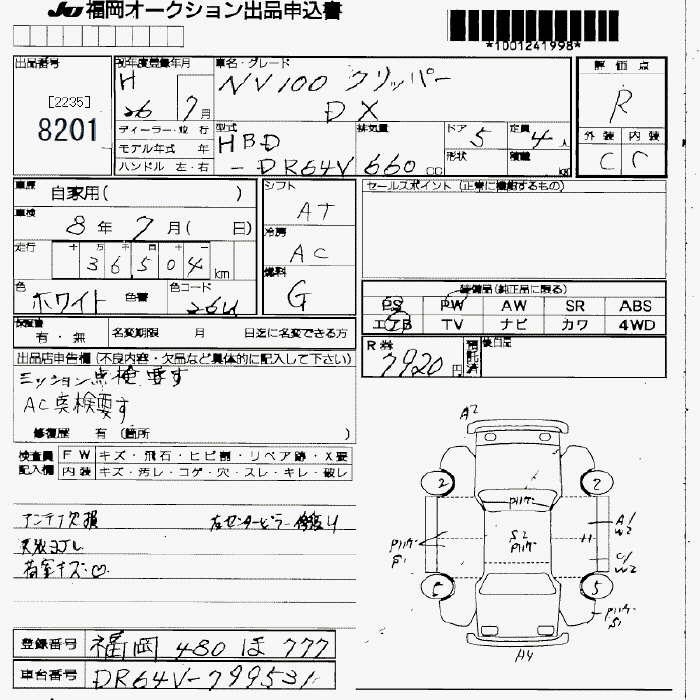 JU 福岡オークション出品申込書
*1001241998*
出品番号
[2235]
8201
初年度登録年月
H
26 7月
ディーラー・並行
モデル年式 年
ハンドル 左・右
車名・グレード
NV100 クリッパー
DX
型式
HBD
-DR64V
排気量
660 CC
ドア 5
定員 4人
形状
積載 kg
評価点
R
外装 内装
C C
車歴
自家用( )
車検
8年 7月( 日)
走行
十 万 千 百 十 一
36504 km
色
ホワイト
色替
色コード
26U
シフト
AT
冷房
AC
燃料
G
セールスポイント(正常に機能するもの)
装備品(純正品に限る)
PS PW AW SR ABS
エアB TV ナビ カワ 4WD
保証書
有・無
名変期限 月 日迄に名変できる方
R券
7920円
預託済
後日品
出品店申告欄(不良内容・欠品など具体的に記入して下さい)
ミッション点検要す
AC点検要す
修復歴 有(箇所 )
検査員記入欄
FW キズ・飛石・ヒビ割・リペア跡・X要
内装 キズ・汚レ・コゲ・穴・スレ・キレ・破レ
アンテナ欠損
左センターピラー修復有り
天張ヨゴレ
荷室キズ・凹
A2
2 2
ハリケ
S2
ハリケ
ハリケ
S1
A1
W2
C1
W2
6 5
ハリケ
S1
A4
登録番号 福岡 480 ほ 777
車台番号 DR64V-799531